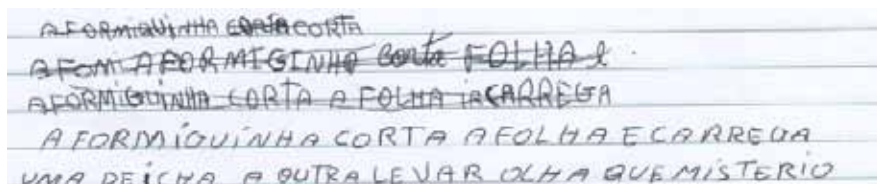 A FORMIQUINHA CORTA CORTA
A FOM A FORMIGINHO Corta FOLHA e
A FORMIGUINHA CORTA A FOLHA IACARREGA
A FORMIGUINHA CORTA A FOLHA E CARREGA
UMA DEICHA A OUTRA LEVAR OLHA QUE MISTERIO